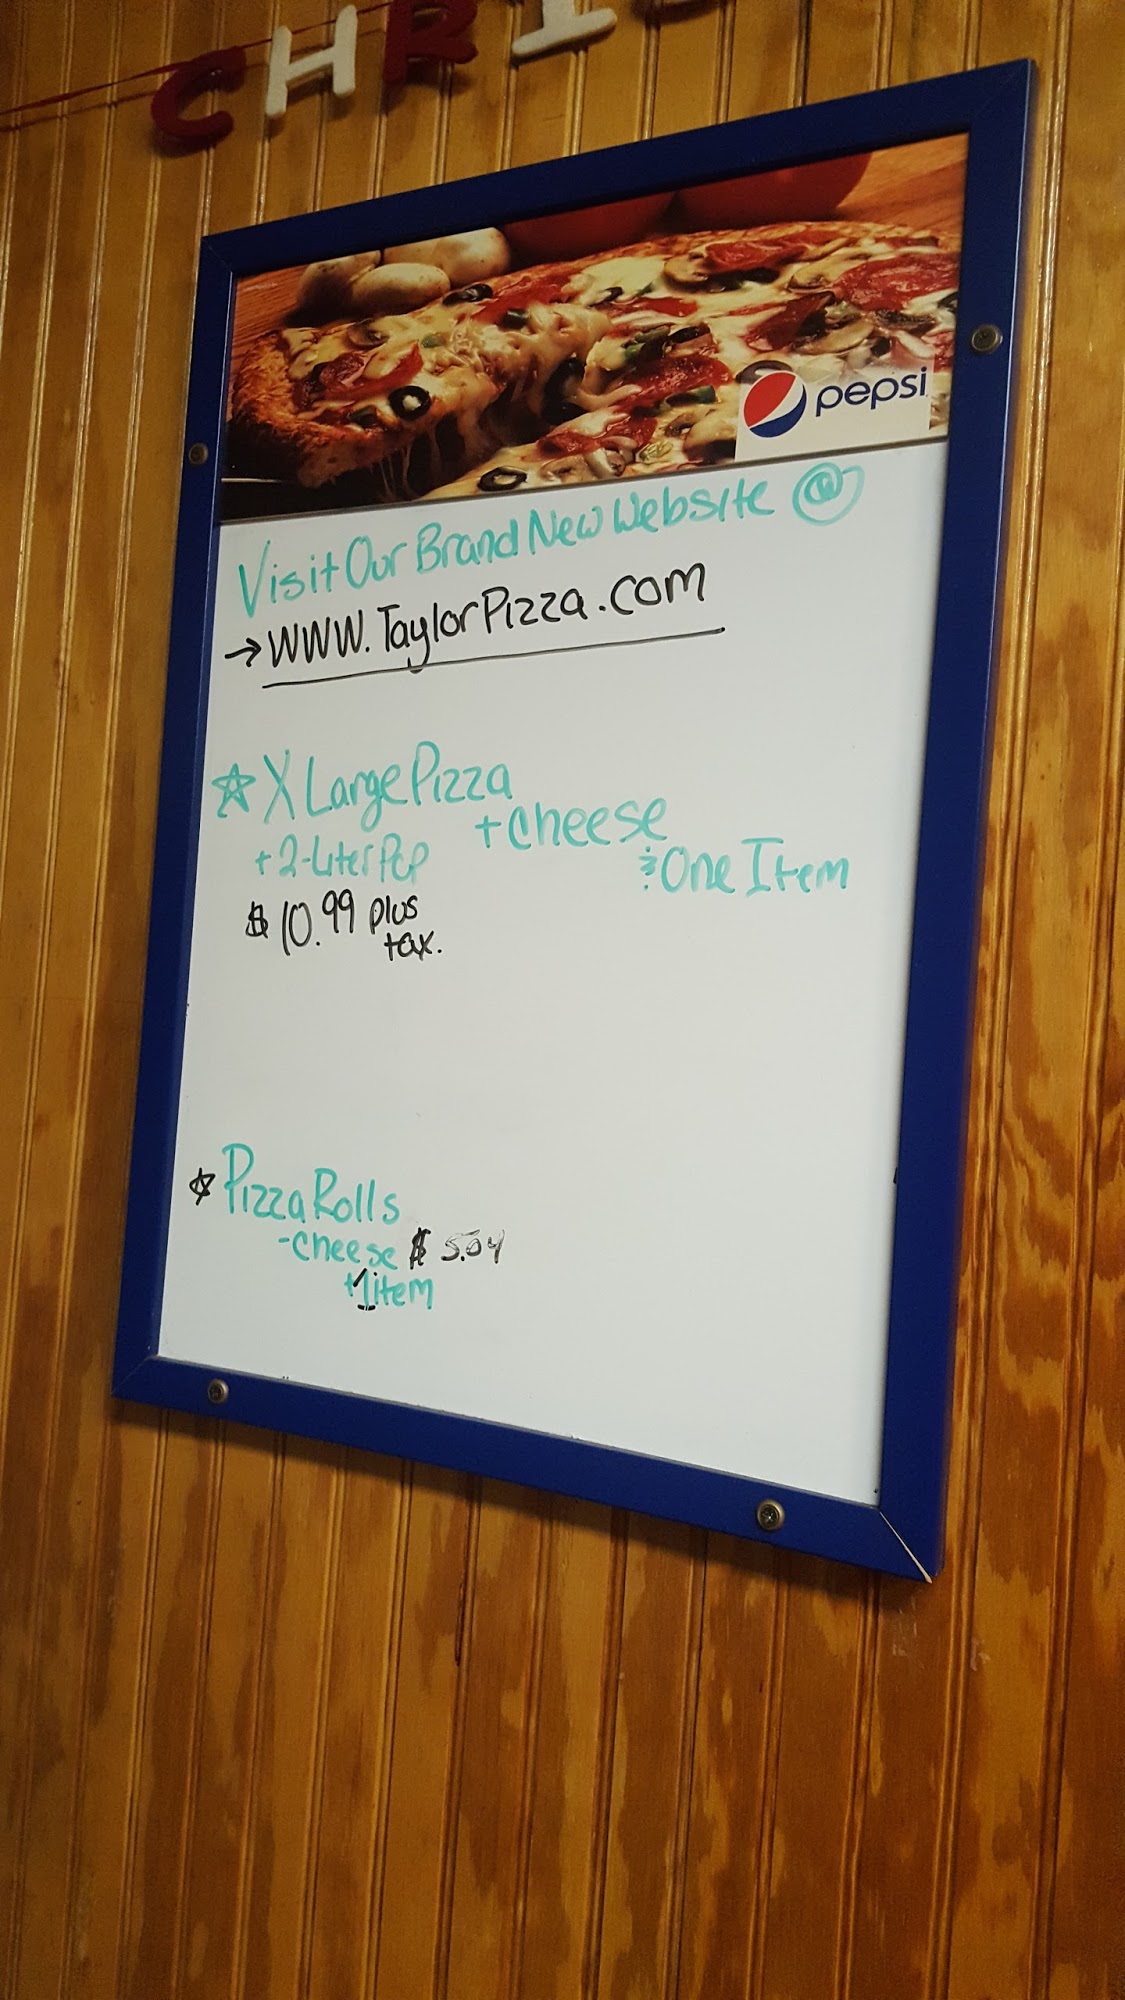 CHRI
pepsi
Visit Our Brand New Website @
→ WWW.TaylorPizza.com
☆ X Large Pizza
+ Cheese
& One Item
+ 2-Liter Pop
$ 10.99 plus
tax.
☆ Pizza Rolls
- Cheese $ 5.04
+1 item